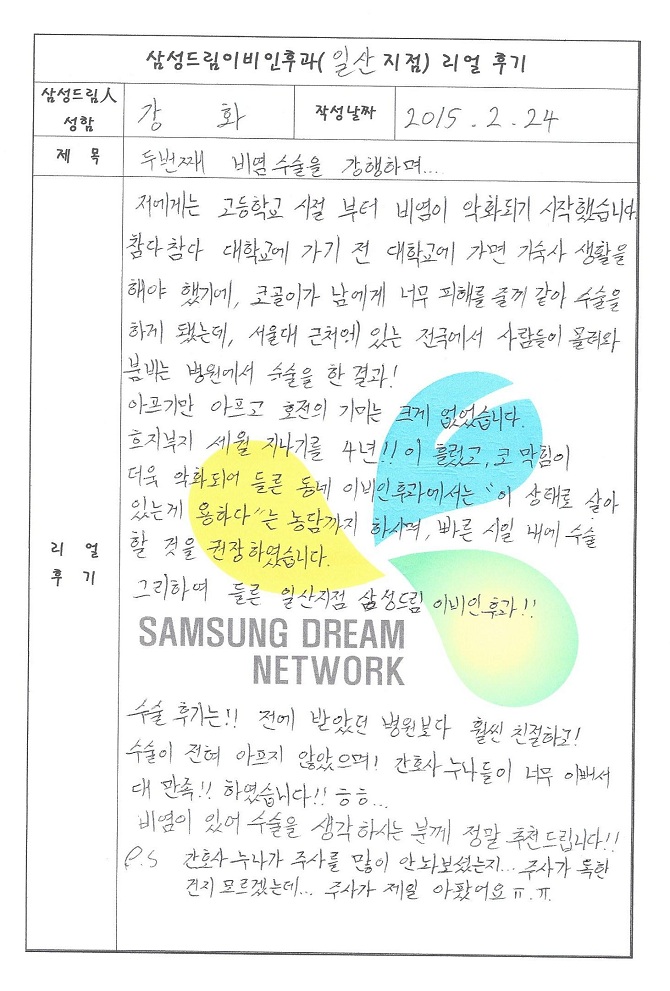 삼성드림이비인후과( 일산 지점) 리얼 후기
삼성드림人 성함
강 화
작성날짜
2015 . 2 . 24
제 목
두번째 비염수술을 강행하며...
리 얼 후 기
저에게는 고등학교 시절 부터 비염이 악화되기 시작했습니다.
참다참다 대학교에 가기 전 대학교에 가면 기숙사 생활을
해야 했기에, 코골이가 남에게 너무 피해를 줄꺼 같아 수술을
하게 됐는데, 서울대 근처에 있는 전국에서 사람들이 몰려와
붐비는 병원에서 수술을 한 결과!
아프기만 아프고 호전의 기미는 크게 없었습니다.
흐지부지 세월 지나기를 4년!! 이 흘렀고, 코 막힘이
더욱 악화되어 들른 동네 이비인후과에서는 "이 상태로 살아
있는게 용하다"는 농담까지 하시며, 빠른 시일 내에 수술
할 것을 권장하였습니다.
그리하여 들른 일산지점 삼성드림 이비인후과!!
SAMSUNG DREAM
NETWORK
수술 후기는!! 전에 받았던 병원보다 훨씬 친절하고!
수술이 전혀 아프지 않았으며! 간호사 누나들이 너무 이뻐서
대 만족!! 하였습니다!! ㅎㅎ...
비염이 있어 수술을 생각하시는 분께 정말 추천드립니다!!
P.S 간호사누나가 주사를 많이 안놔보셨는지... 주사가 독한
건지 모르겠는데... 주사가 제일 아팠어요 ㅠ.ㅠ